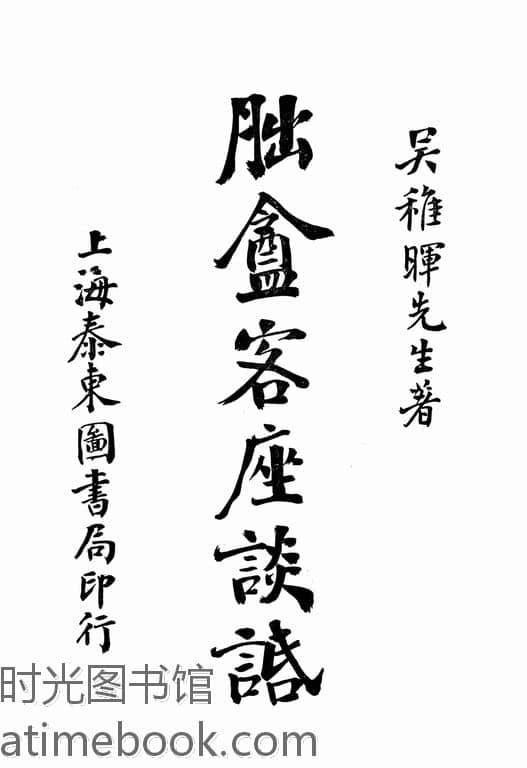 吳稚暉先生著
朏盦客座談話
上海泰東圖書局印行
时光图书馆
atimebook.com